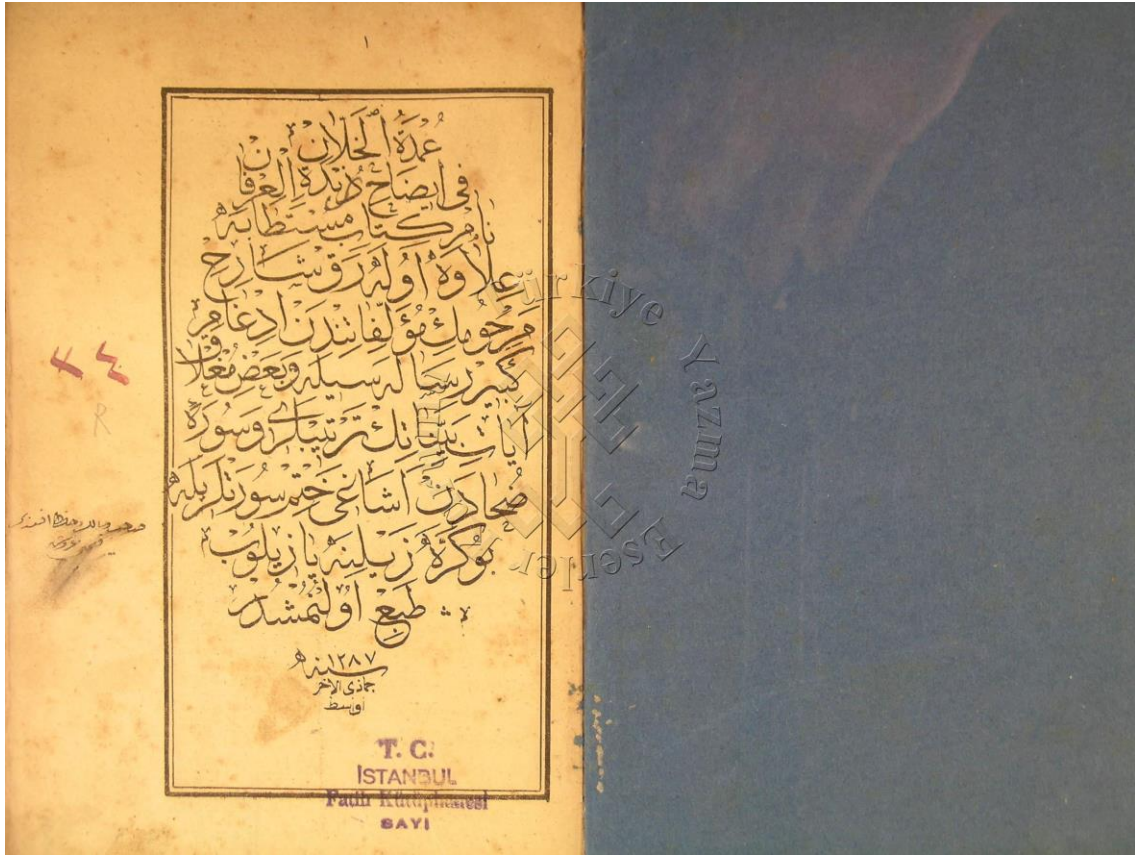 ١
عُمْدَةُ الْخُلَّانْ
فى ايضاح زبدة العرفان
نام كتاب مستطابه
علاوه اوله رق شارح
مرحومك مؤلفاتندن ادغام
كبير رساله سيله وبعض مغلاق
آيات بيناتك ترتيبلرى وسورۀ
ضحادن اشاغى ختم سورتلريله
بوكره زيلينه يازيلوب
طبع اولنمشدر
سنه ١٢٨٧
جماذى الاخر
اوسط
٢٤
R
T. C.
İSTANBUL
Fatih Kütüphanesi
SAYI
Türkiye Yazma Eserler